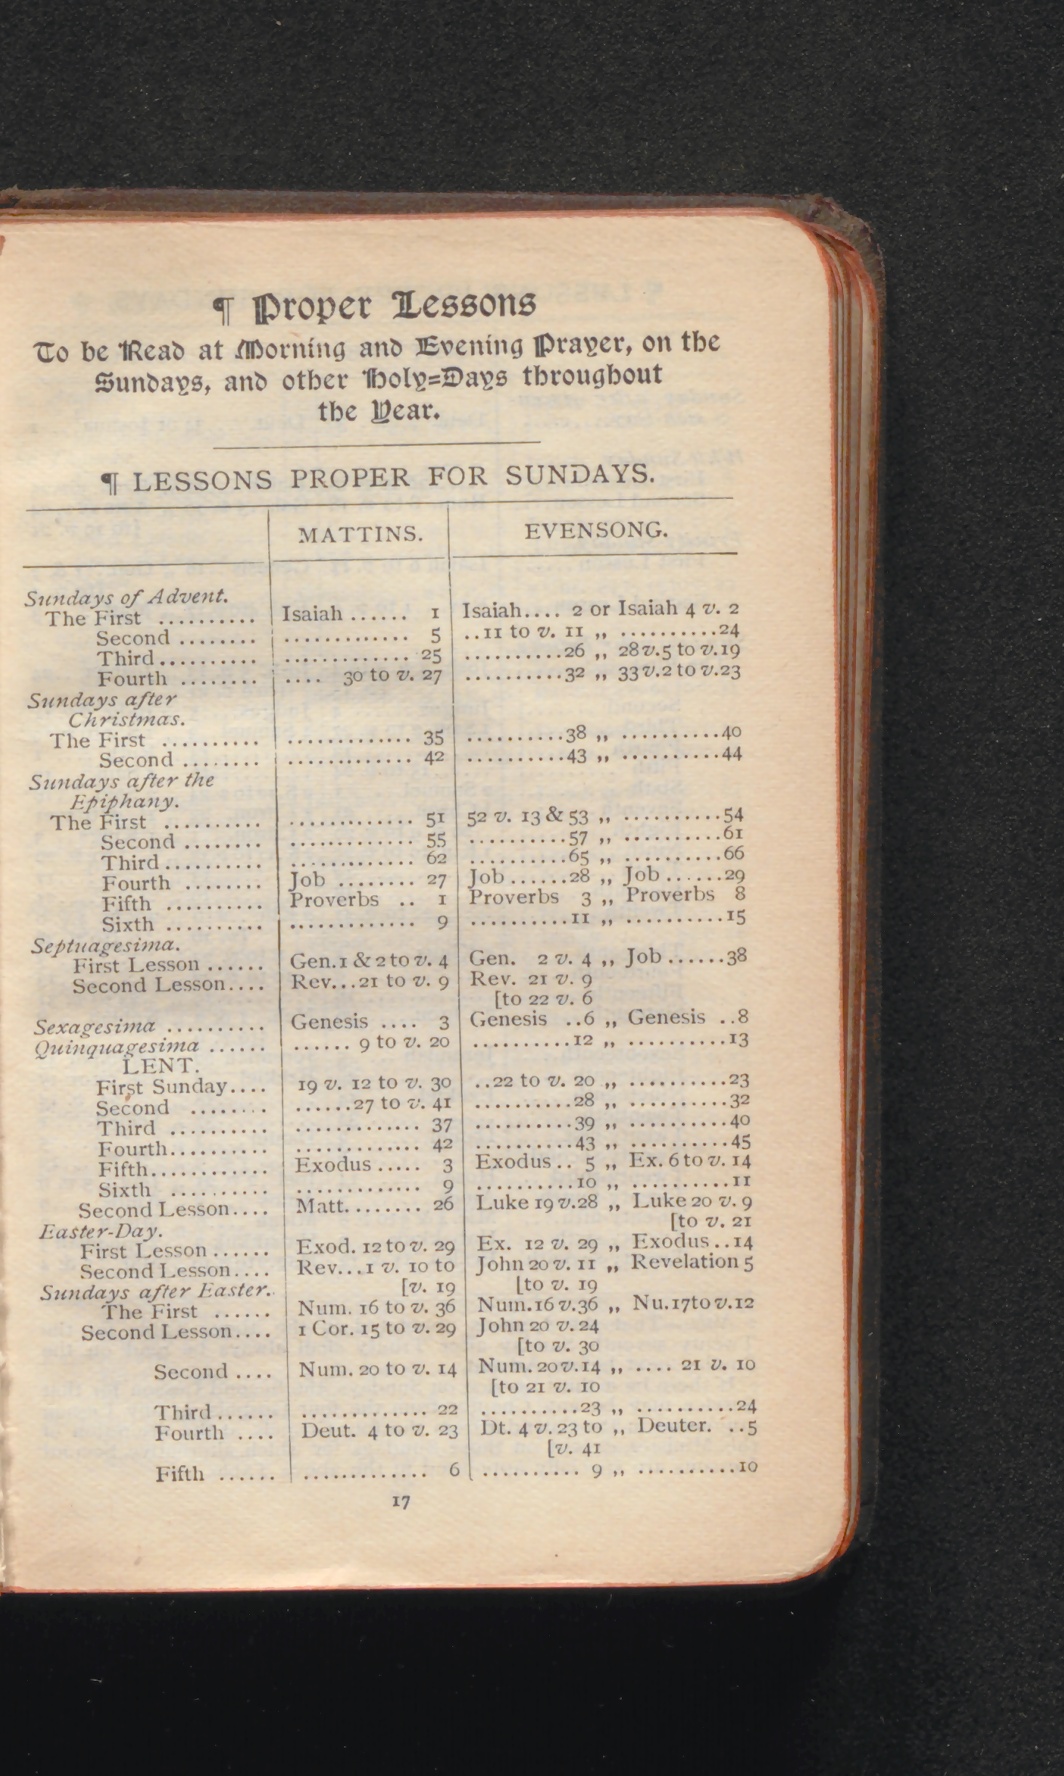 ¶ Proper Lessons
To be Read at Morning and Evening Prayer, on the
Sundays, and other Holy=Days throughout
the Year.
¶ LESSONS PROPER FOR SUNDAYS.
MATTINS. EVENSONG.
Sundays of Advent.
The First .......... Isaiah ...... 1 Isaiah.... 2 or Isaiah 4 v. 2
Second ........ ............. 5 ..11 to v. 11 ,, ..........24
Third.......... ............. 25 ..........26 ,, 28 v.5 to v.19
Fourth ........ .... 30 to v. 27 ..........32 ,, 33 v.2 to v.23
Sundays after
Christmas.
The First .......... ............. 35 ..........38 ,, ..........40
Second ........ ............. 42 ..........43 ,, ..........44
Sundays after the
Epiphany.
The First .......... ............. 51 52 v. 13 & 53 ,, ..........54
Second ........ ............. 55 ..........57 ,, ..........61
Third.......... ............. 62 ..........65 ,, ..........66
Fourth ........ Job ........ 27 Job......28 ,, Job......29
Fifth .......... Proverbs .. 1 Proverbs 3 ,, Proverbs 8
Sixth .......... ............. 9 ..........11 ,, ..........15
Septuagesima.
First Lesson ...... Gen. 1 & 2 to v. 4 Gen. 2 v. 4 ,, Job......38
Second Lesson.... Rev...21 to v. 9 Rev. 21 v. 9
[to 22 v. 6
Sexagesima .......... Genesis .... 3 Genesis ..6 ,, Genesis ..8
Quinquagesima ...... ...... 9 to v. 20 ..........12 ,, ..........13
LENT.
First Sunday.... 19 v. 12 to v. 30 ..22 to v. 20 ,, ..........23
Second ........ ......27 to v. 41 ..........28 ,, ..........32
Third .......... ............. 37 ..........39 ,, ..........40
Fourth.......... ............. 42 ..........43 ,, ..........45
Fifth............ Exodus ..... 3 Exodus.. 5 ,, Ex. 6 to v. 14
Sixth .......... ............. 9 ..........10 ,, ..........11
Second Lesson.... Matt........ 26 Luke 19 v.28 ,, Luke 20 v. 9
[to v. 21
Easter-Day.
First Lesson ...... Exod. 12 to v. 29 Ex. 12 v. 29 ,, Exodus..14
Second Lesson.... Rev...1 v. 10 to John 20 v. 11 ,, Revelation 5
Sundays after Easter. [v. 19 [to v. 19
The First ...... Num. 16 to v. 36 Num. 16 v.36 ,, Nu. 17 to v.12
Second Lesson.... 1 Cor. 15 to v. 29 John 20 v. 24
[to v. 30
Second .... Num. 20 to v. 14 Num. 20 v.14 ,, .... 21 v. 10
[to 21 v. 10
Third...... ............. 22 ..........23 ,, ..........24
Fourth .... Deut. 4 to v. 23 Dt. 4 v. 23 to ,, Deuter. ..5
[v. 41
Fifth ...... ............. 6 .......... 9 ,, ..........10
17